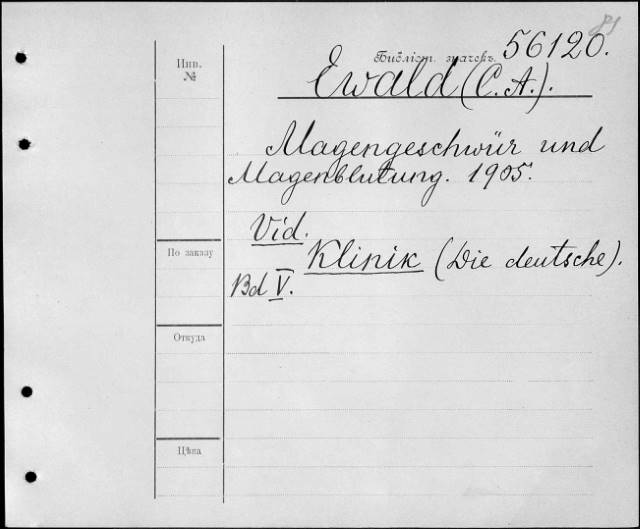 56120.
Инв.
№
Библіот. значекъ.
Ewald (C. A.).
Magengeschwür und
Magenblutung. 1905.
Vid.
Klinik (Die deutsche).
Bd V.
По заказу
Откуда
Цѣна